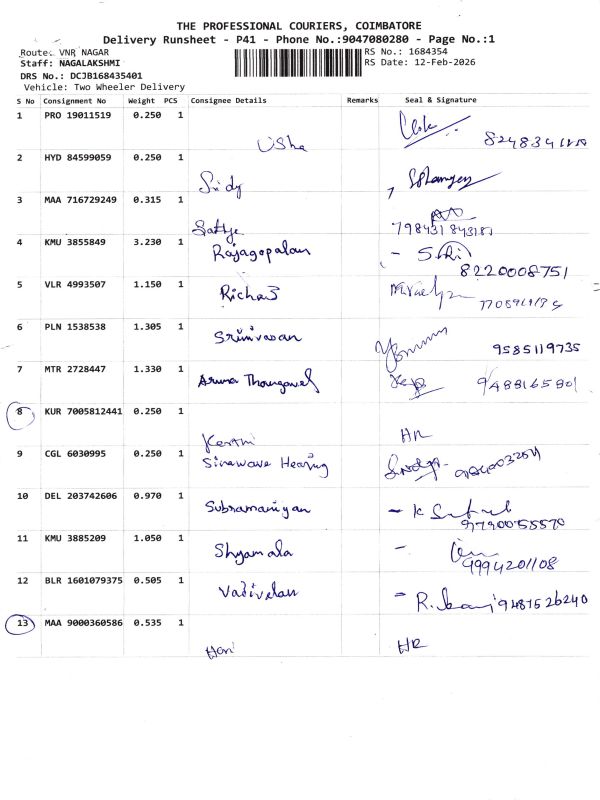 THE PROFESSIONAL COURIERS, COIMBATORE
Delivery Runsheet - P41 - Phone No.:9047080280 - Page No.:1
Route: VNR NAGAR
RS No.: 1684354
Staff: NAGALAKSHMI
RS Date: 12-Feb-2026
DRS No.: DCJB168435401
Vehicle: Two Wheeler Delivery
S No Consignment No Weight PCS Consignee Details Remarks Seal & Signature
1 PRO 19011519 0.250 1
Usha
2 HYD 84599059 0.250 1
Sridy
3 MAA 716729249 0.315 1
Sathya
4 KMU 3855849 3.230 1
Rajagopalan
8220008751
5 VLR 4993507 1.150 1
Richa
6 PLN 1538538 1.305 1
Srinivasan
9585119735
7 MTR 2728447 1.330 1
Aruna Thangavel 9488165801
8 KUR 7005812441 0.250 1
Keerthi HR
9 CGL 6030995 0.250 1
Sinewave Hearing
10 DEL 203742606 0.970 1
Subramaniyan
9790055570
11 KMU 3885209 1.050 1
Shyamala
9994201108
12 BLR 1601079375 0.505 1
Vadivelan
9487526240
13 MAA 9000360586 0.535 1
Hari HR